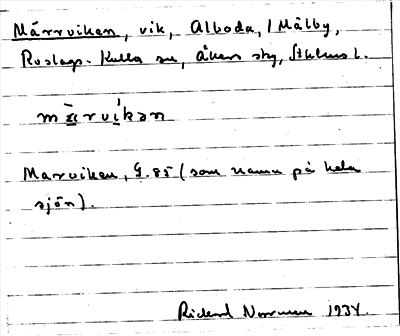 Märrviken, vik, Alboda, / Målby,
Roslags-Kulla sn, Åkers sky, Sthlms l.
mä̀rvíkən
Marviken, G. 85 (som namn på hela
sjön).
Rickard Norrman 1934.